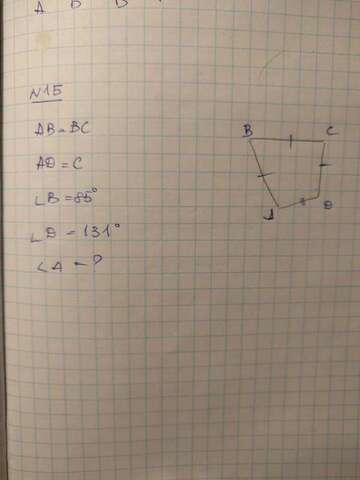 N15
AB=BC
AD=C
∠B=85°
∠D=131°
∠A-?
B
C
A
D